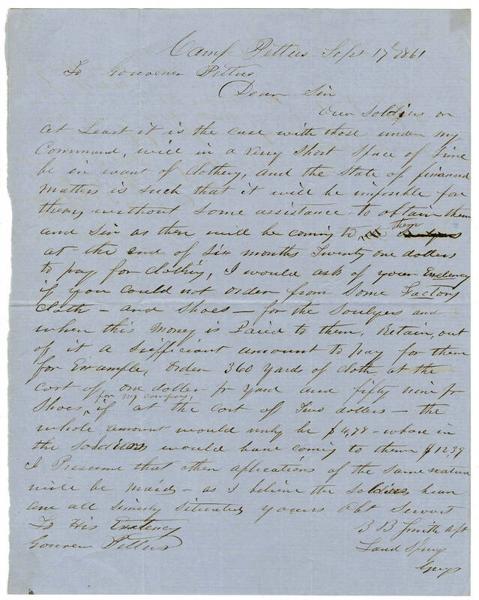 Camp Pettus Sept 17th 1861
To Gouvener Pettus
Dear Sir
Our Soldiers or
at Least it is the case with those under my
Command, will in a very short space of time
be in want of Clothing, and the State of financial
matters is such that it will be impossible for
them without some assistance to obtain them
and Sir as there will be coming to them
at the end of Six months Twenty one dollars
to pay for clothing, I would ask of your Exelency
if you could not order from some Factory
Cloth - and Shoes - for the Souldgers and
when this money is Paied to them, Retain out
of it a sufficient amount to pay for them
for Example, Order 360 yards of cloth at the
cost of one dollar pr yard and fifty nine pr
Shoes, for my company, if at the cost of Two dollars - the
whole amount would only be $4,78 - whare in
the Soldiers would have coming to them $1239
I Presume that other aplications of the same nature
will be maid - as I believe the Soldiers hear
are all similarly situated yours Obt Servent
To His Exelency
Gouver Pettus
B B Smith Capt